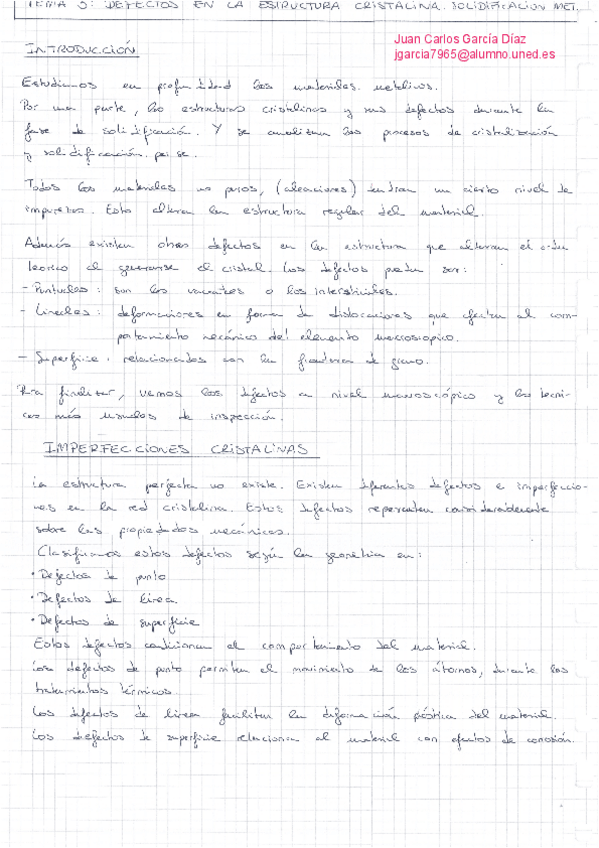 TEMA 3: DEFECTOS EN LA ESTRUCTURA CRISTALINA. SOLIDIFICACION MET.
Juan Carlos García Díaz
jgarcia7965@alumno.uned.es
INTRODUCCIÓN
Estudiamos en profundidad los materiales metálicos.
Por una parte, las estructuras cristalinas y sus defectos durante la
fase de solidificación. Y se analizan los procesos de cristalización
y solidificación per se.
Todos los materiales no puros, (aleaciones) tendran un cierto nivel de
impurezas. Esto alteran la estructura regular del material.
Además existen otros defectos en la estructura que alteran el orden
teorico al generarse el cristal. Los defectos pueden ser:
- Puntuales: son las vacantes o los intersticiales.
- Lineales: deformaciones en forma de dislocaciones que afectan al com-
portamiento mecánico del elemento macroscópico.
- Superficie: relacionados con la frontera de grano.
Para finalizar, vemos los defectos a nivel macroscópico y las técni-
cas más usuales de inspección.
IMPERFECCIONES CRISTALINAS
La estructura perfecta no existe. Existen diferentes defectos e imperfeccio-
nes en la red cristalina. Estos defectos repercuten considerablemente
sobre las propiedades mecánicas.
Clasificamos estos defectos según la geometría en:
• Defectos de punto
• Defectos de línea.
• Defectos de superficie
Estos defectos condicionan el comportamiento del material.
Los defectos de punto permiten el movimiento de los átomos, durante los
tratamientos térmicos
Los defectos de línea facilitan la deformación plástica del material.
Los defectos de superficie relaciona al material con efectos de corrosión.